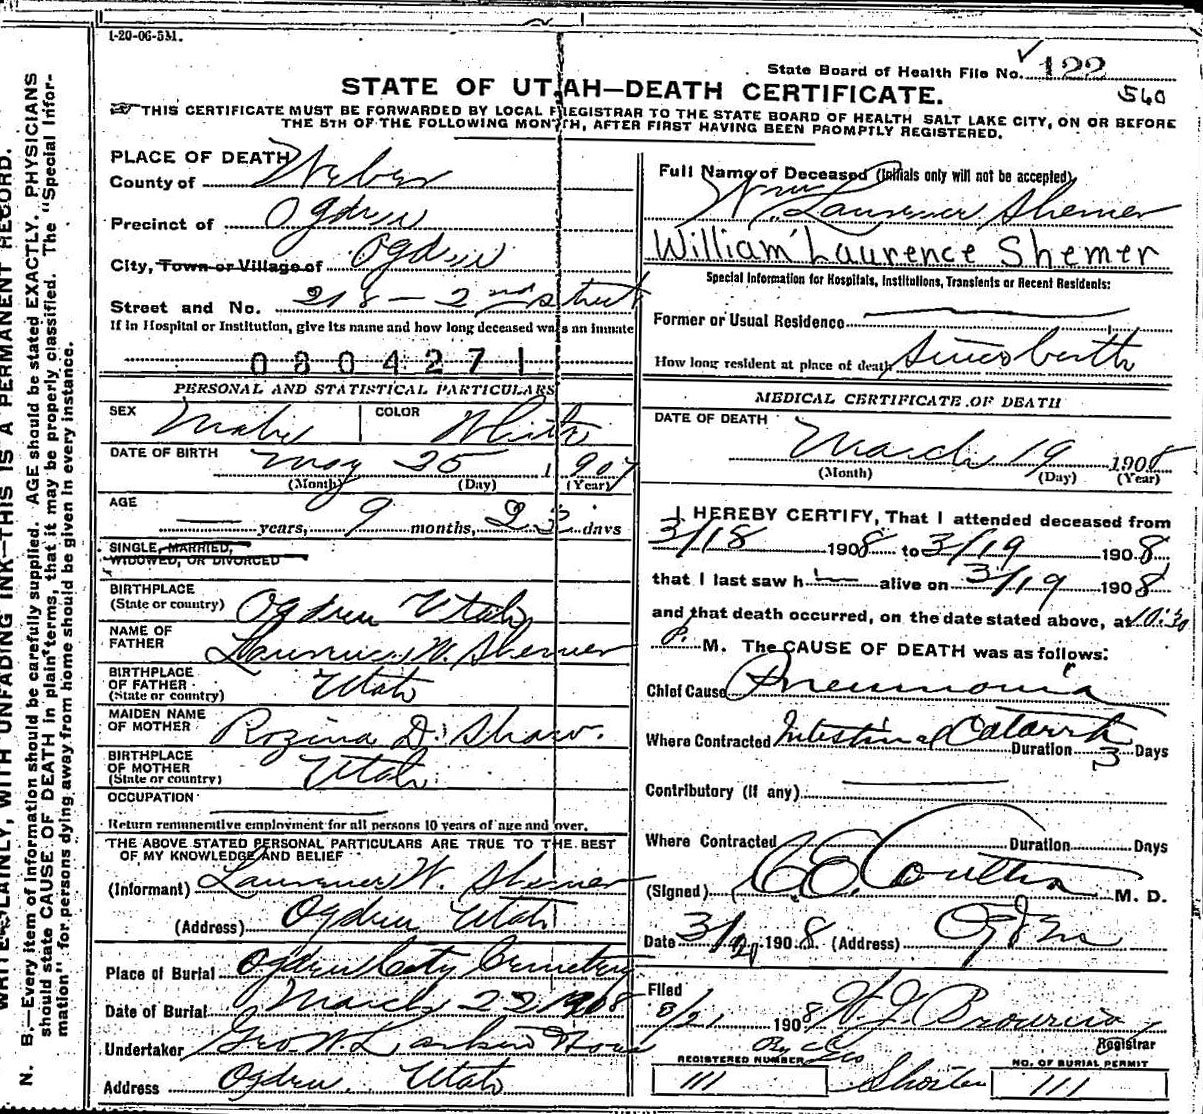 1-20-06-5M.
State Board of Health File No. 122
560
STATE OF UTAH—DEATH CERTIFICATE.
THIS CERTIFICATE MUST BE FORWARDED BY LOCAL REGISTRAR TO THE STATE BOARD OF HEALTH SALT LAKE CITY, ON OR BEFORE
THE 5TH OF THE FOLLOWING MONTH, AFTER FIRST HAVING BEEN PROMPTLY REGISTERED.
PLACE OF DEATH
County of Weber
Precinct of Ogden
City, Town or Village of Ogden
Street and No. 218 - 2nd street
If in Hospital or Institution, give its name and how long deceased was an inmate
0804271
PERSONAL AND STATISTICAL PARTICULARS
SEX Male COLOR White
DATE OF BIRTH May 25 1907
(Month) (Day) (Year)
AGE
— years, 9 months, 23 days
SINGLE, MARRIED,
WIDOWED, OR DIVORCED
BIRTHPLACE
(State or country) Ogden Utah
NAME OF
FATHER Laurence W. Shemer
BIRTHPLACE
OF FATHER
(State or country) Utah
MAIDEN NAME
OF MOTHER Rozina D. Shaw.
BIRTHPLACE
OF MOTHER
(State or country) Utah
OCCUPATION
Return remunerative employment for all persons 10 years of age and over.
THE ABOVE STATED PERSONAL PARTICULARS ARE TRUE TO THE BEST
OF MY KNOWLEDGE AND BELIEF
(Informant) Laurence W. Shemer
(Address) Ogden Utah
Place of Burial Ogden City Cemetery
Date of Burial March 22 1908
Undertaker Geo. W. Larkin
Address Ogden, Utah
Full Name of Deceased (Initials only will not be accepted)
Wm Laurence Shemer
William Laurence Shemer
Special Information for Hospitals, Institutions, Transients or Recent Residents:
Former or Usual Residence —
How long resident at place of death Since birth
MEDICAL CERTIFICATE OF DEATH
DATE OF DEATH
March 19 1908
(Month) (Day) (Year)
I HEREBY CERTIFY, That I attended deceased from
3/18 1908 to 3/19 1908
that I last saw h alive on 3/19 1908
and that death occurred, on the date stated above, at 10:30
P. M. The CAUSE OF DEATH was as follows:
Chief Cause Pneumonia
Intestinal Catarrh
Where Contracted Duration 3 Days
Contributory (if any) —
Where Contracted Duration Days
(Signed) M. D.
Date 3/ 1908 (Address) Ogden
Filed
3/21 1908
Registrar
REGISTERED NUMBER
111
NO. OF BURIAL PERMIT
111
N. B.—Every item of information should be carefully supplied. AGE should be stated EXACTLY. PHYSICIANS
should state CAUSE OF DEATH in plain terms, that it may be properly classified. The "Special Infor-
mation" for persons dying away from home should be given in every instance.
WITH UNFADING INK—THIS IS A PERMANENT RECORD.